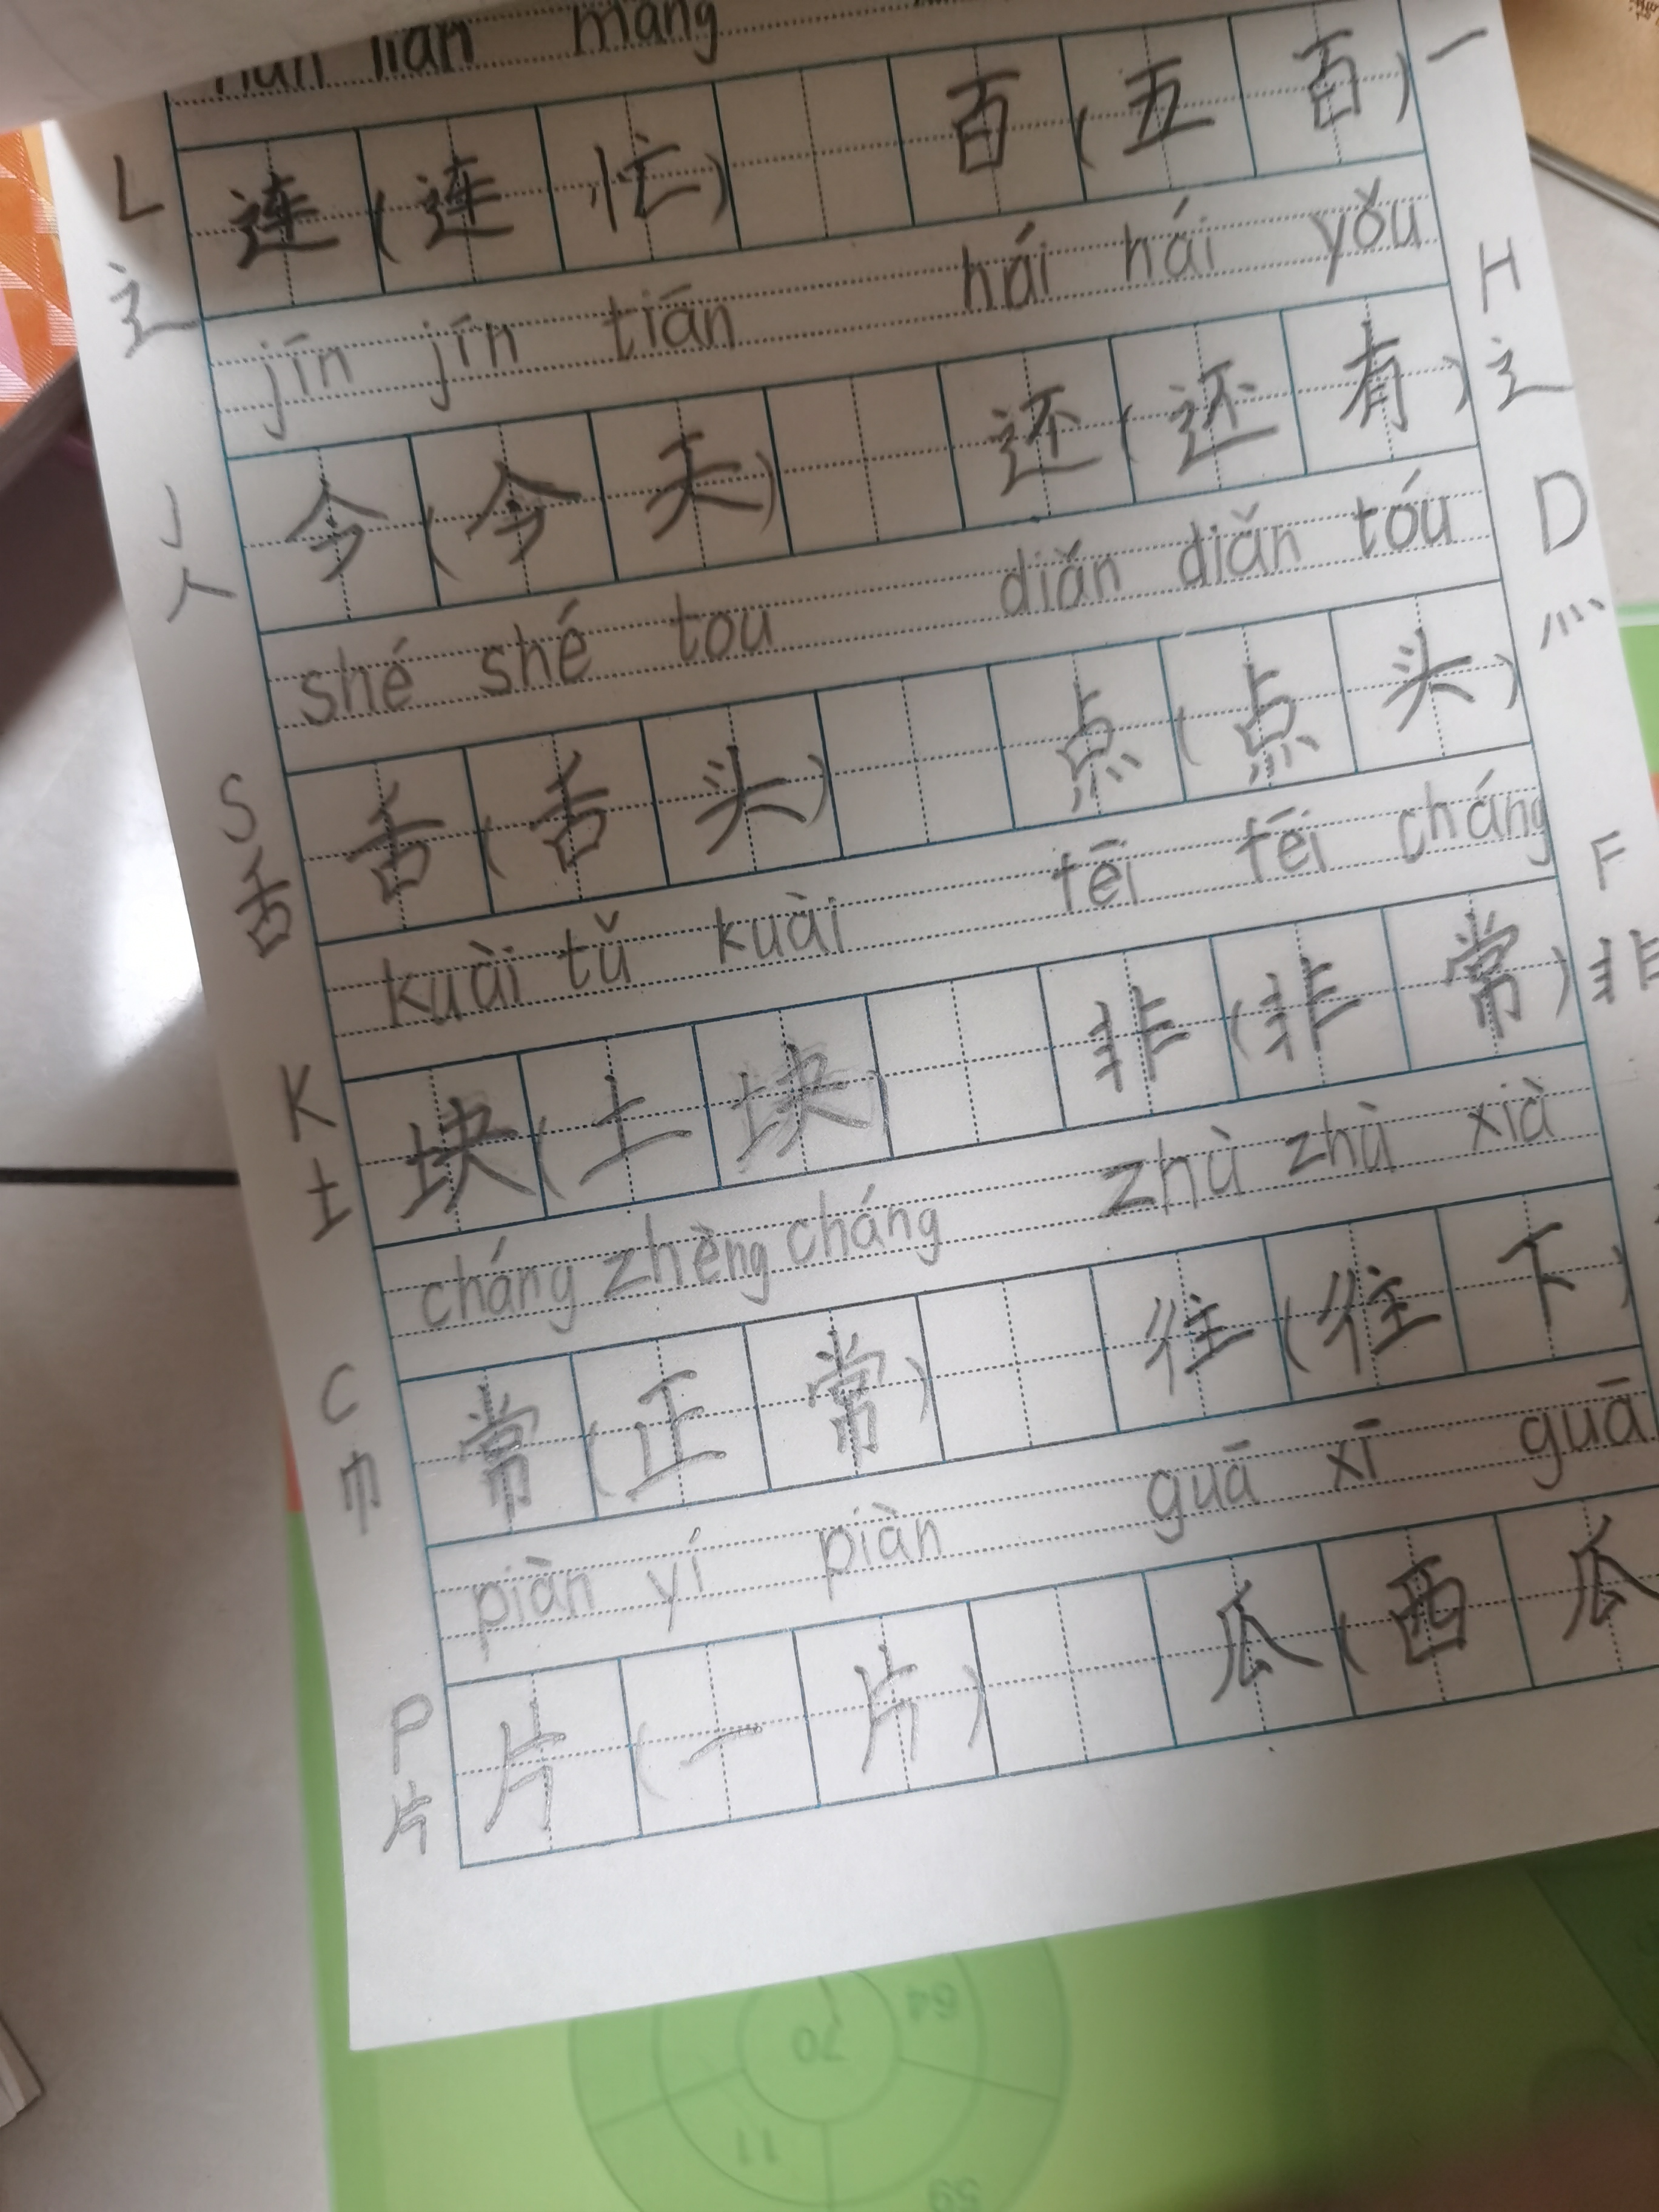 lián máng
L 连(连 忙) 百(五 百) 一
辶 jīn jīn tiān hái hái yǒu H
J 今(今 天) 还(还 有) 辶
人 shé shé tou diǎn diǎn tóu D
S 舌(舌 头) 点(点 头) 灬
舌 kuài tǔ kuài fēi fēi cháng F
K 块(土 块) 非(非 常) 非
土 cháng zhèng cháng zhù zhù xià
C 常(正 常) 往(往 下)
巾 piàn yí piàn guā xī guā
P 片(一 片) 瓜(西 瓜
片
64
70
11
59